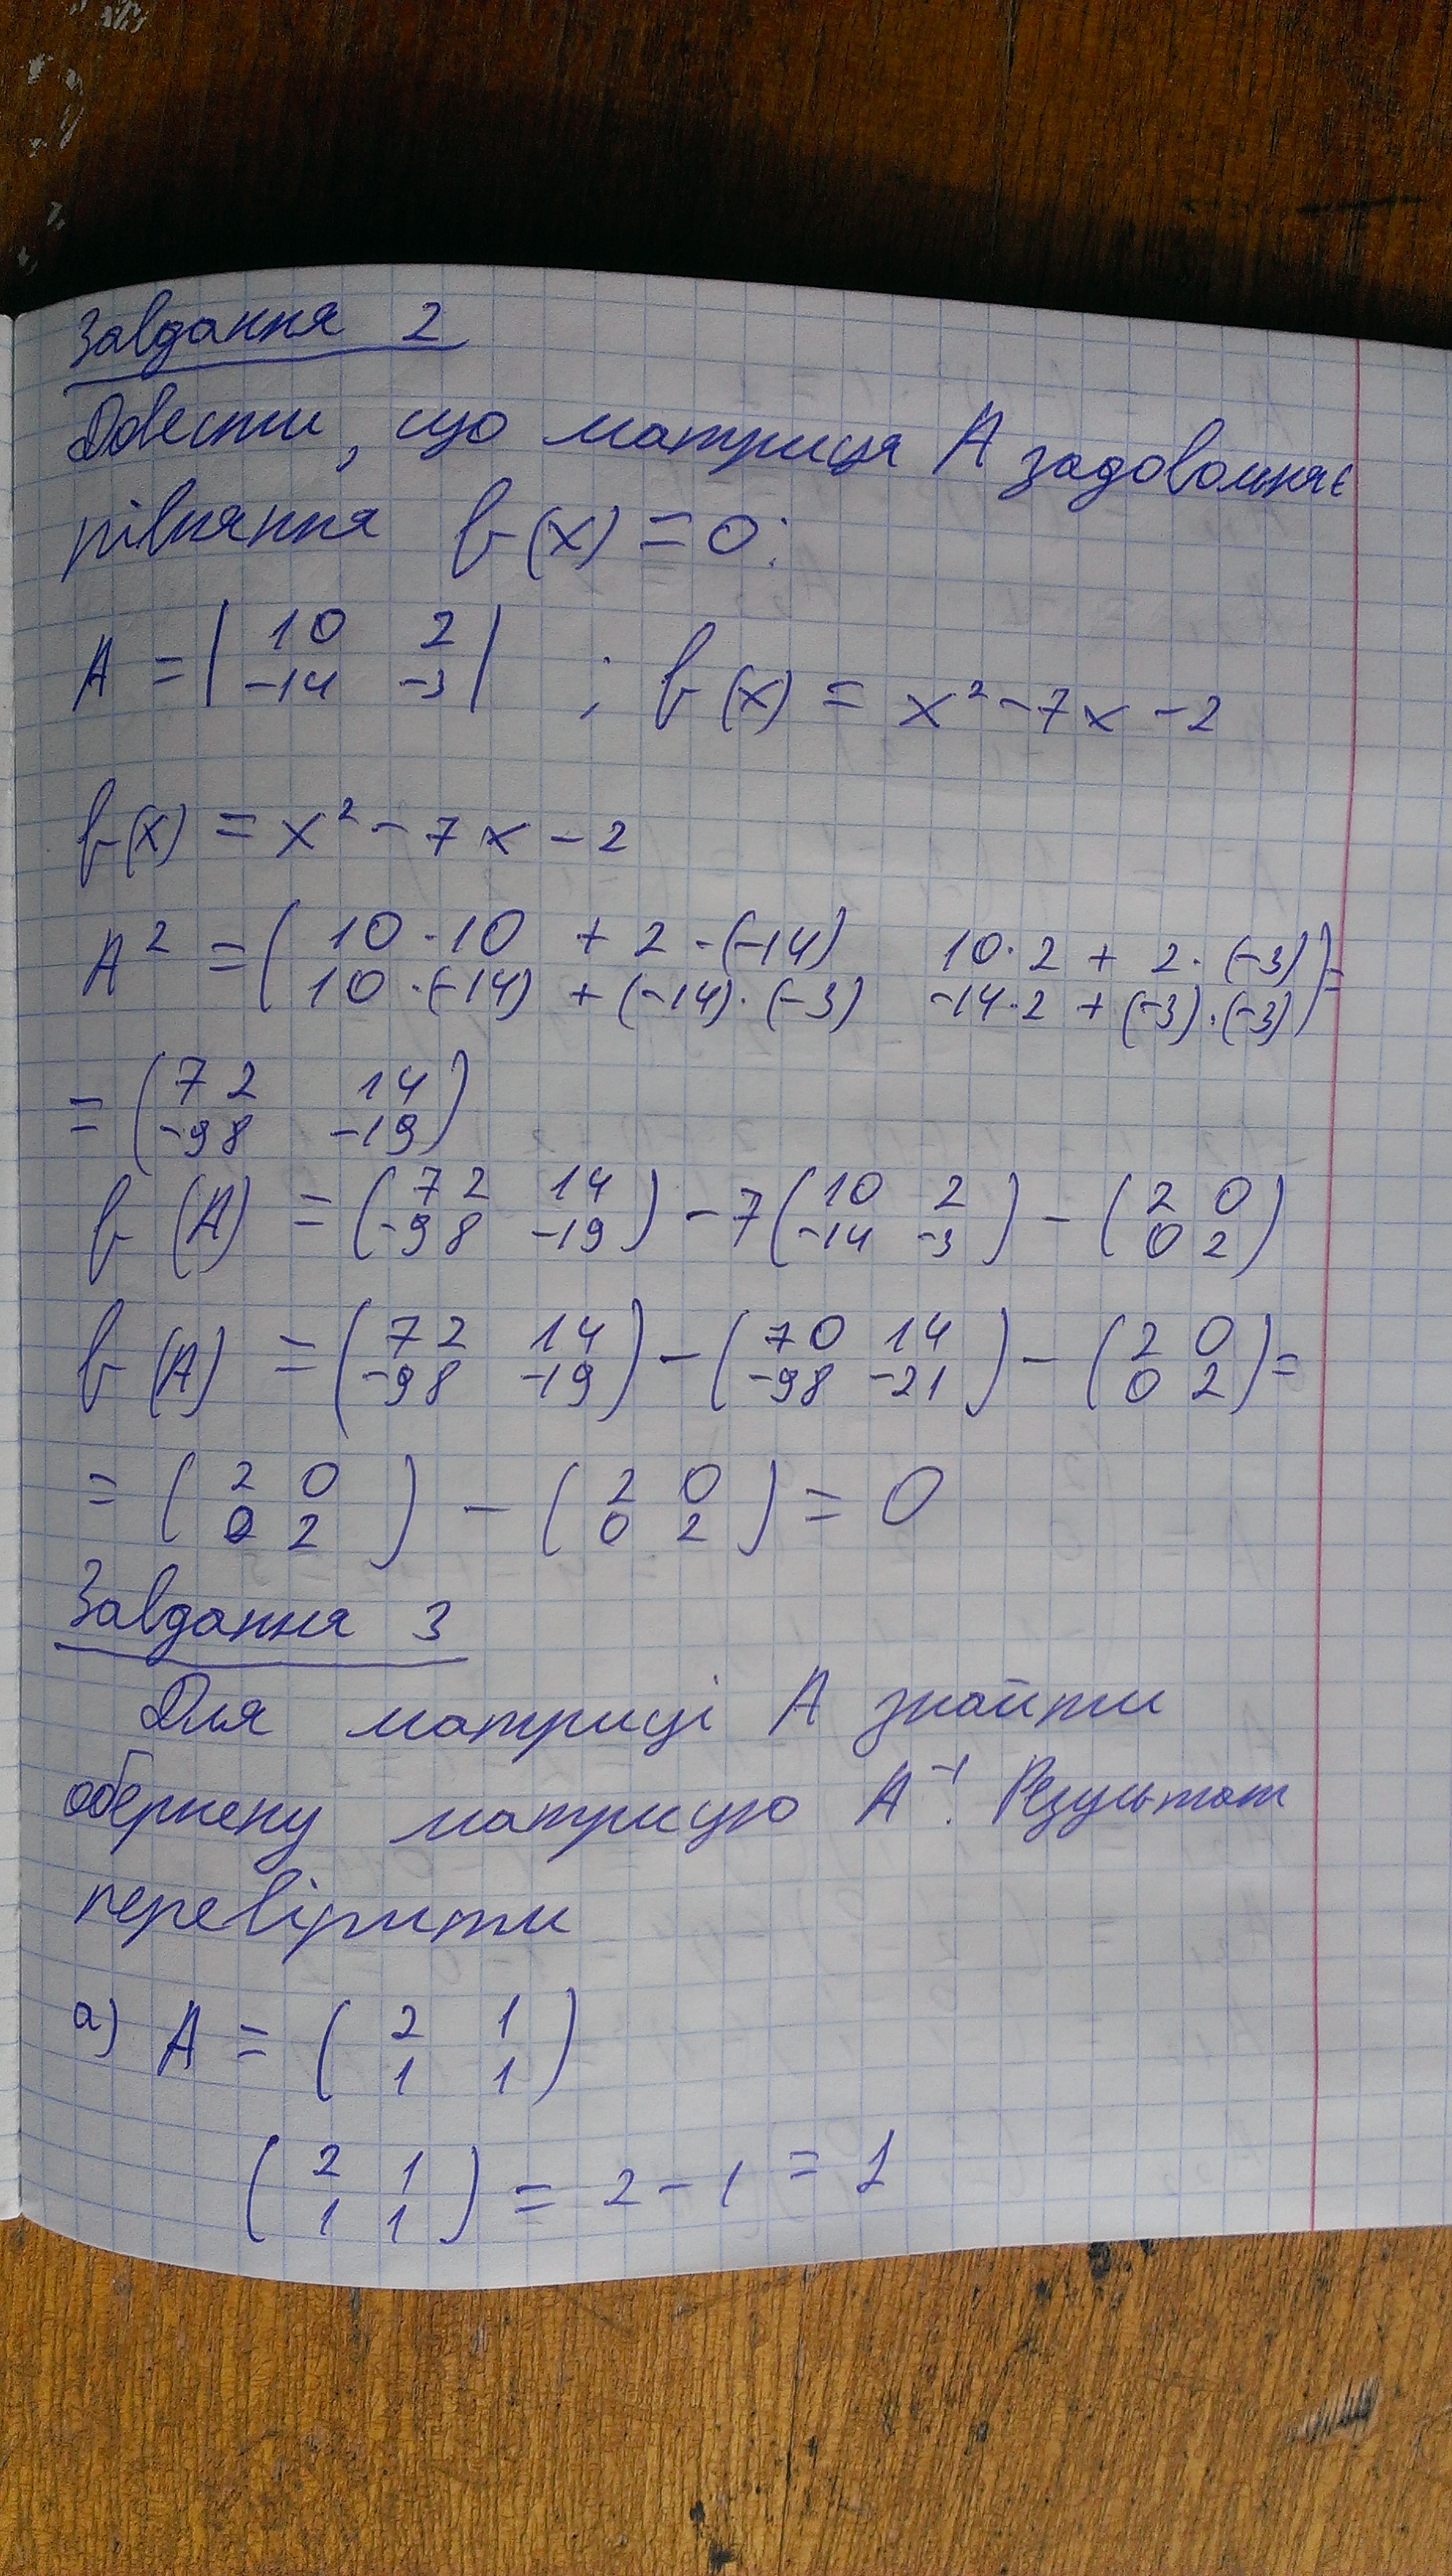 Завдання 2
Довести, що матриця A задовольняє
рівняння f(x) = 0:
A = | 10 2 | ; f(x) = x² - 7x - 2
| -14 -3 |
f(x) = x² - 7x - 2
A² = ( 10·10 + 2·(-14) 10·2 + 2·(-3) ) =
( 10·(-14) + (-14)·(-3) -14·2 + (-3)·(-3) )
= ( 72 14 )
( -98 -19 )
f(A) = ( 72 14 ) - 7 ( 10 2 ) - ( 2 0 )
( -98 -19 ) ( -14 -3 ) ( 0 2 )
f(A) = ( 72 14 ) - ( 70 14 ) - ( 2 0 ) =
( -98 -19 ) ( -98 -21 ) ( 0 2 )
= ( 2 0 ) - ( 2 0 ) = 0
( 0 2 ) ( 0 2 )
Завдання 3
Для матриці A знайти
обернену матрицю A⁻¹. Результат
перевірити
а) A = ( 2 1 )
( 1 1 )
( 2 1 ) = 2 - 1 = 1
( 1 1 )